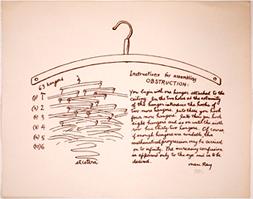 63 hangers
Instructions for assembling
OBSTRUCTION:
You begin with one hanger attached to the
ceiling. In the two holes at the extremity
of the hanger introduce the hooks of
two more hangers. Into these you hook
four more hangers. Into these you hook
eight hangers and so on until the sixth
row has thirty two hangers. Of course
if enough hangers are available, this
mathematical progression may be carried
on to infinity. The increasing confusion
is apparent only to the eye and is to be
desired.
Man Ray
etcetera